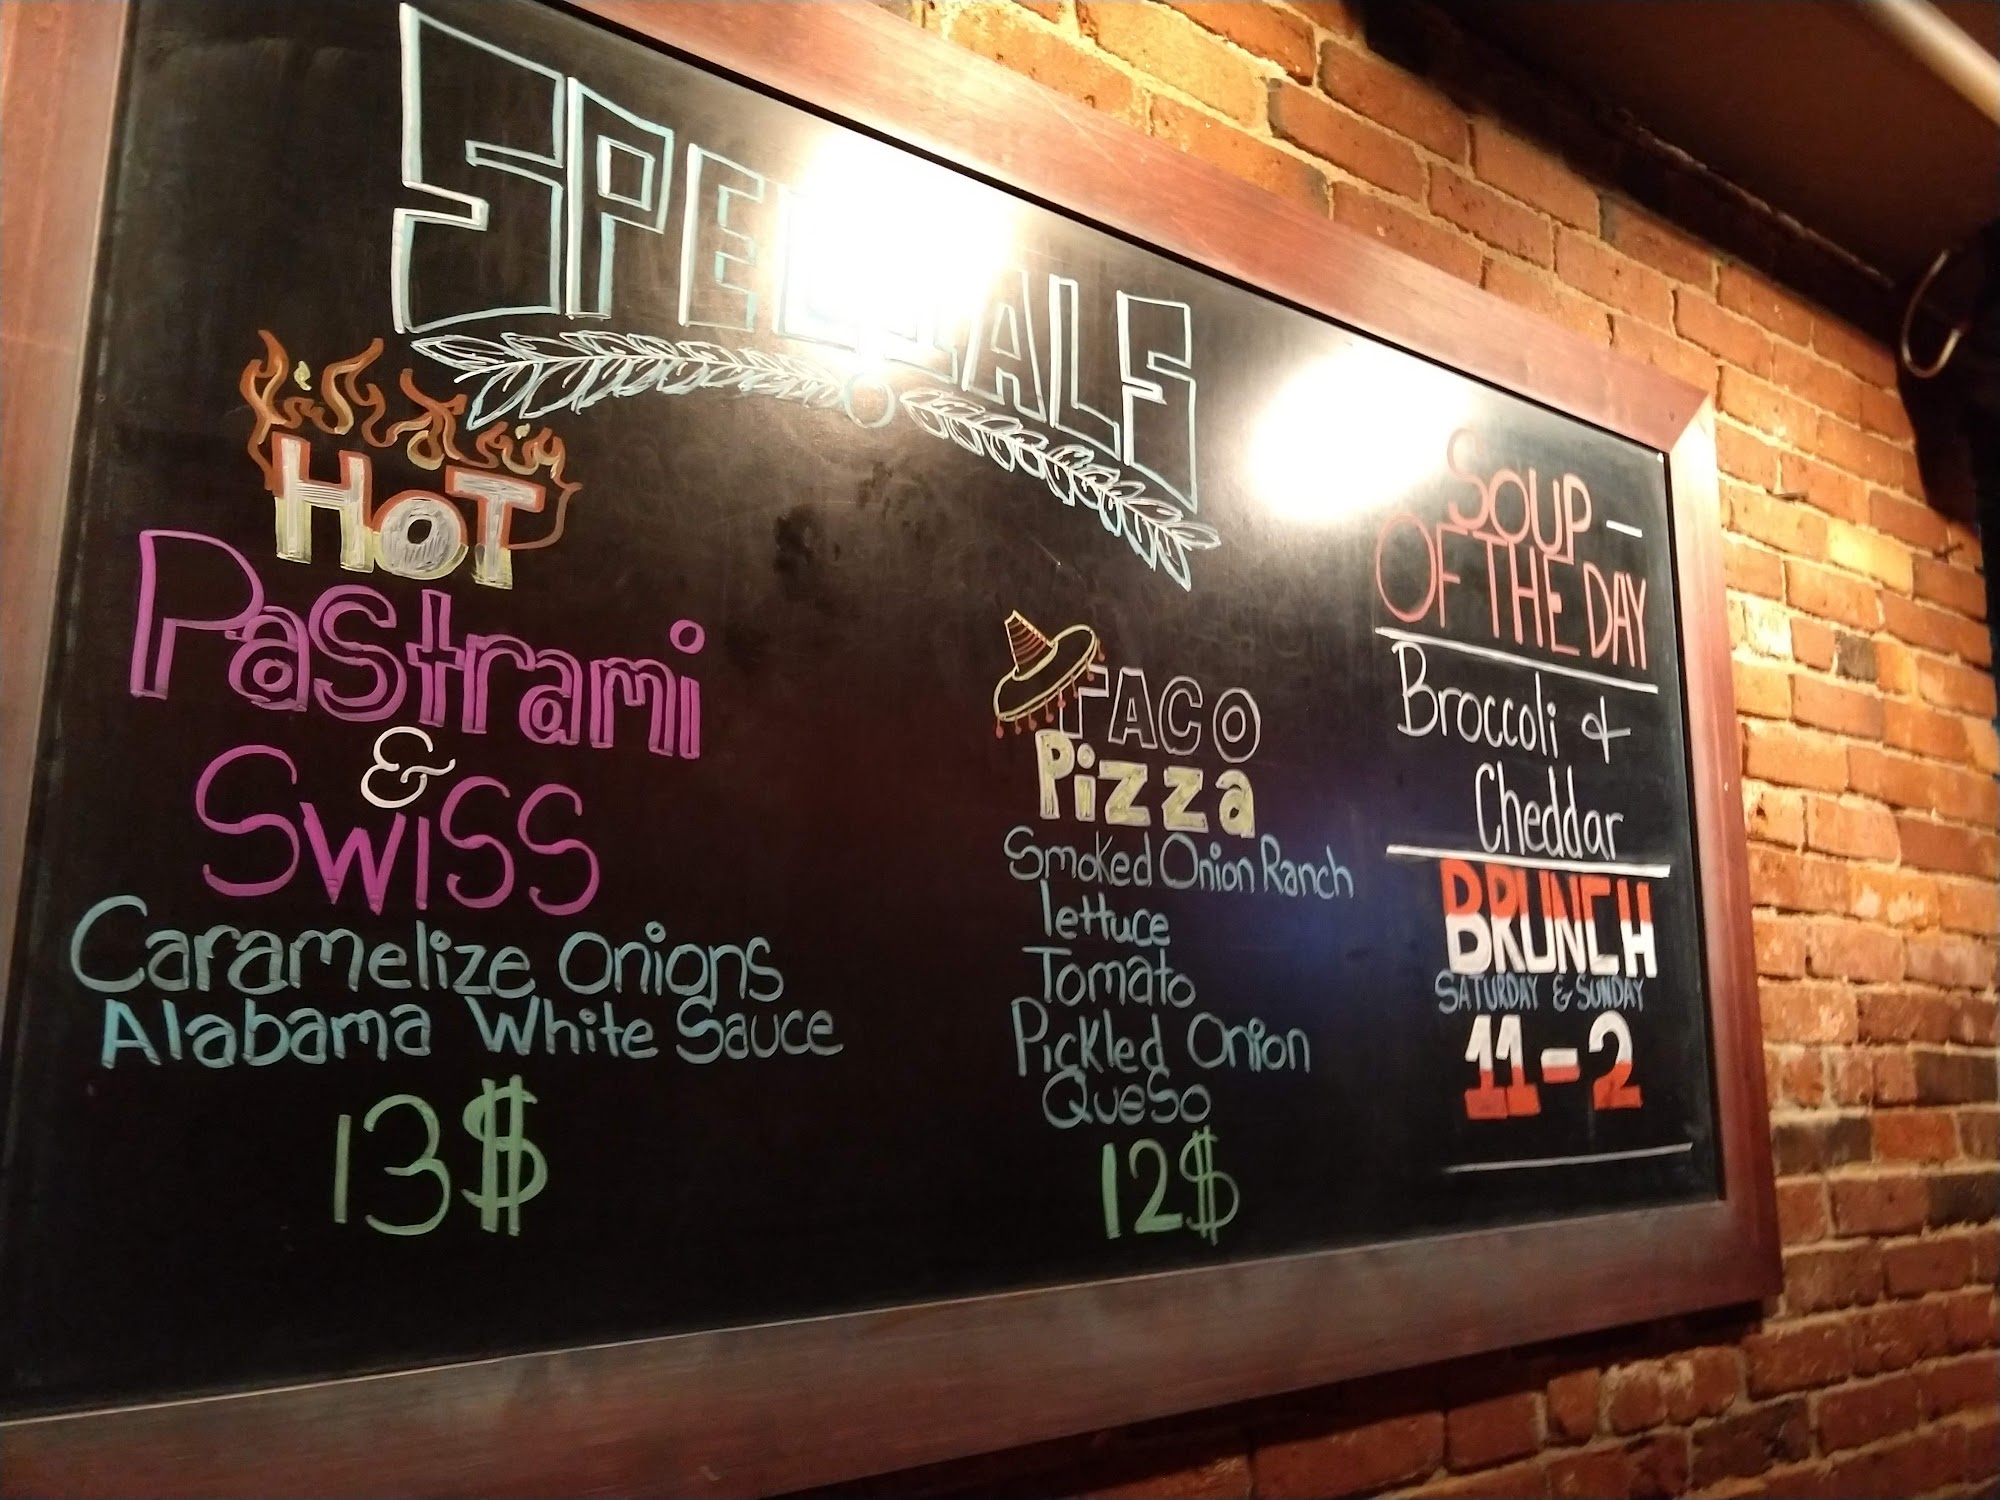 SPECIALS
HOT
Pastrami
&
SWISS
Caramelize Onions
Alabama White Sauce
13$
TACO
Pizza
Smoked Onion Ranch
lettuce
Tomato
Pickled Onion
Queso
12$
SOUP —
OF THE DAY
Broccoli &
Cheddar
BRUNCH
SATURDAY & SUNDAY
11-2